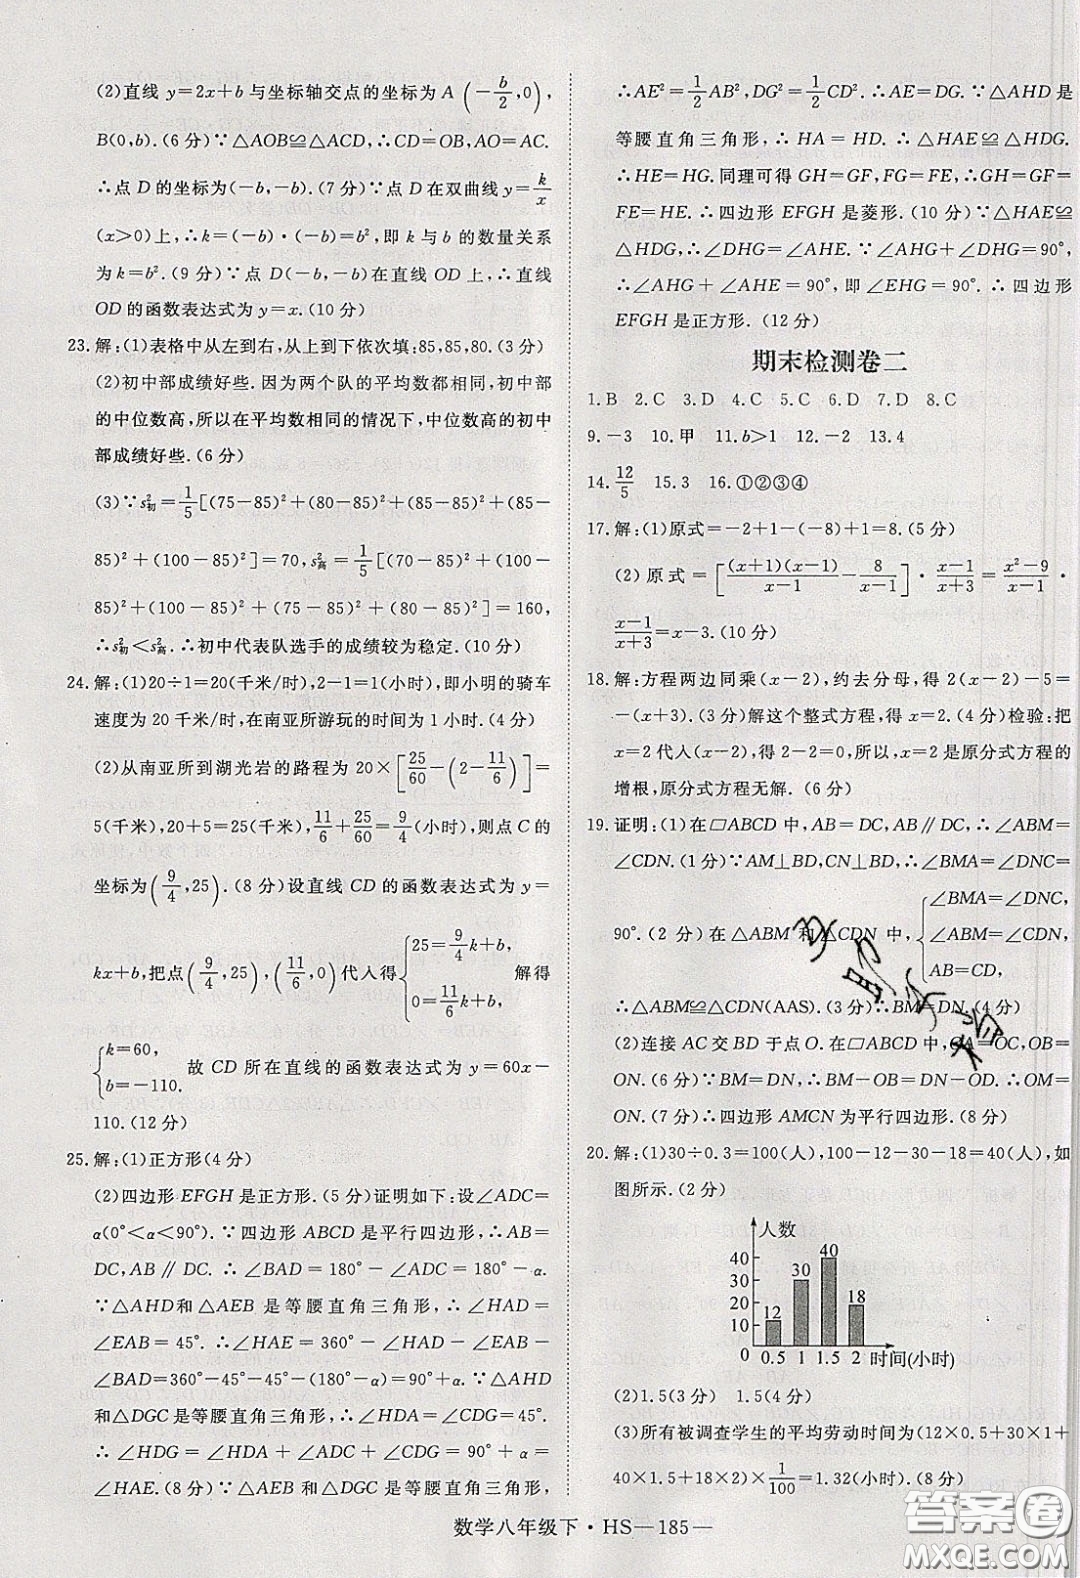 (2)直线 y=2x+b 与坐标轴交点的坐标为 A (−b/2,0),
B(0,b).(6 分)∵△AOB≌△ACD,∴CD=OB,AO=AC.
∴点 D 的坐标为(−b,−b).(7 分)∵点 D 在双曲线 y=k/x
(x>0)上,∴k=(−b)·(−b)=b²,即 k 与 b 的数量关系
为 k=b².(9 分)∵点 D(−b,−b)在直线 OD 上,∴直线
OD 的函数表达式为 y=x.(10 分)
23.解:(1)表格中从左到右,从上到下依次填:85,85,80.(3 分)
(2)初中部成绩好些.因为两个队的平均数都相同,初中部
的中位数高,所以在平均数相同的情况下,中位数高的初中
部成绩好些.(6 分)
(3)∵s²初=1/5[(75−85)²+(80−85)²+(85−85)²+(85−
85)²+(100−85)²]=70,s²高=1/5[(70−85)²+(100−
85)²+(100−85)²+(75−85)²+(80−85)²]=160,
∴s²初<s²高.∴初中代表队选手的成绩较为稳定.(10 分)
24.解:(1)20÷1=20(千米/时),2−1=1(小时),即小明的骑车
速度为 20 千米/时,在南亚所游玩的时间为 1 小时.(4 分)
(2)从南亚所到湖光岩的路程为 20×[25/60−(2−11/6)]=
5(千米),20+5=25(千米),11/6+25/60=9/4(小时),则点 C 的
坐标为(9/4,25).(8 分)设直线 CD 的函数表达式为 y=
kx+b,把点(9/4,25),(11/6,0)代入得{25=9/4k+b, 0=11/6k+b, 解得
{k=60, b=−110. 故 CD 所在直线的函数表达式为 y=60x−
110.(12 分)
25.解:(1)正方形(4 分)
(2)四边形 EFGH 是正方形.(5 分)证明如下:设∠ADC=
α(0°<α<90°).∵四边形 ABCD 是平行四边形,∴AB=
DC,AB∥DC.∴∠BAD=180°−∠ADC=180°−α.
∵△AHD和△AEB 是等腰直角三角形,∴∠HAD=
∠EAB=45°.∴∠HAE=360°−∠HAD−∠EAB−
∠BAD=360°−45°−45°−(180°−α)=90°+α.∵△AHD
和△DGC 是等腰直角三角形,∴∠HDA=∠CDG=45°.
∴∠HDG=∠HDA+∠ADC+∠CDG=90°+α=
∠HAE.(8 分)∵△AEB和△DGC是等腰直角三角形,
∴AE²=1/2AB²,DG²=1/2CD².∴AE=DG.∵△AHD 是
等腰直角三角形,∴HA=HD.∴△HAE≌△HDG.
∴HE=HG.同理可得 GH=GF,FG=FE,∴GH=GF=
FE=HE.∴四边形 EFGH 是菱形.(10 分)∵△HAE≌
△HDG,∴∠DHG=∠AHE.∵∠AHG+∠DHG=90°,
∴∠AHG+∠AHE=90°,即∠EHG=90°.∴四边形
EFGH 是正方形.(12 分)
期末检测卷二
1.B 2.C 3.D 4.C 5.C 6.D 7.D 8.C
9.−3 10.甲 11.b>1 12.−2 13.4
14.12/5 15.3 16.①②③④
17.解:(1)原式=−2+1−(−8)+1=8.(5 分)
(2)原式=[(x+1)(x−1)/(x−1)−8/(x−1)]·(x−1)/(x+3)=(x²−9)/(x−1)·
(x−1)/(x+3)=x−3.(10 分)
18.解:方程两边同乘(x−2),约去分母,得 2(x−2)−5=
−(x+3).(3 分)解这个整式方程,得 x=2.(4 分)检验:把
x=2 代入(x−2),得 2−2=0,所以,x=2 是原分式方程的
增根,原分式方程无解.(6 分)
19.证明:(1)在▱ABCD 中,AB=DC,AB∥DC,∴∠ABM=
∠CDN.(1 分)∵AM⊥BD,CN⊥BD,∴∠BMA=∠DNC=
90°.(2 分)在△ABM 和△CDN 中,{∠BMA=∠DNC, ∠ABM=∠CDN, AB=CD,
∴△ABM≌△CDN(AAS).(3 分)∴BM=DN.(4 分)
(2)连接 AC 交 BD 于点 O.在▱ABCD 中,OA=OC,OB=
OD.(6 分)∵BM=DN,∴BM−OB=DN−OD.∴OM=
ON.(7 分)∴四边形 AMCN 为平行四边形.(8 分)
20.解:(1)30÷0.3=100(人),100−12−30−18=40(人),如
图所示.(2 分)
人数
40
30
20
10
12 30 40 18
0.5 1 1.5 2 时间(小时)
(2)1.5(3 分) 1.5(4 分)
(3)所有被调查学生的平均劳动时间为(12×0.5+30×1+
40×1.5+18×2)×1/100=1.32(小时).(8 分)
数学八年级下·HS—185—
答案圈
MXQE.COM